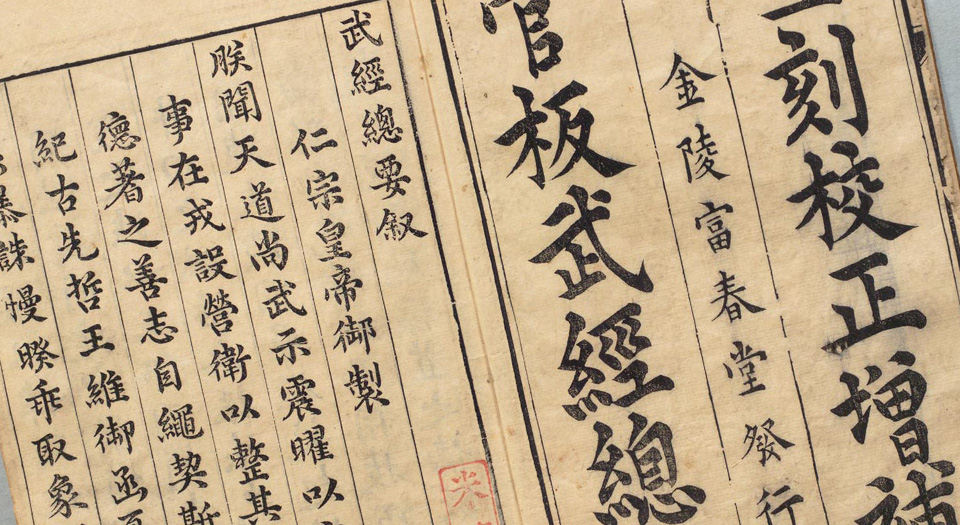 刻校正增補
金陵富春堂發行
官板武經總
武經總要叙
仁宗皇帝御製
朕聞天道尚武示震曜以
事在戎設營衛以整其
德著之善志自繩契斯
紀古先哲王維御函夏
暴誅慢暌乖取象